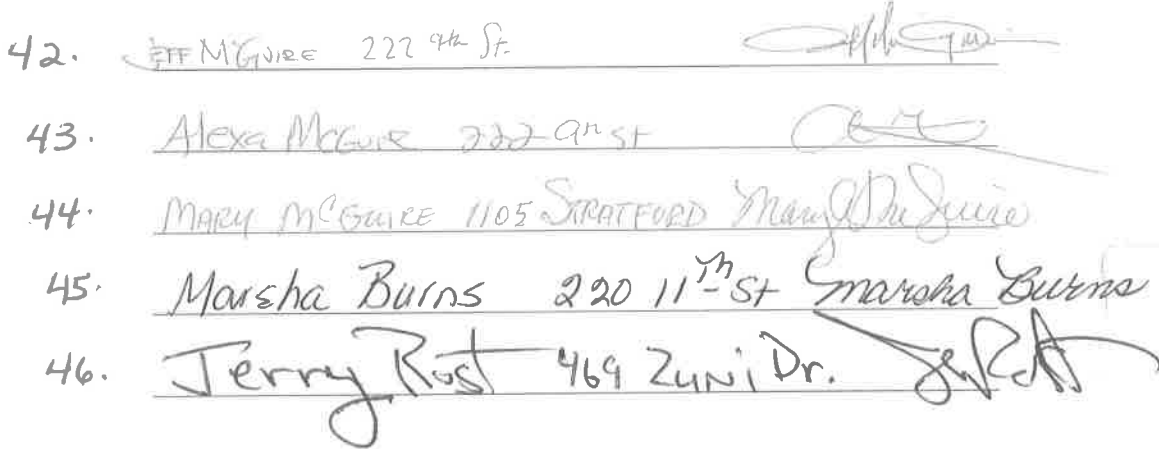 42. JEFF McGUIRE 222 9th St.
43. Alexa McGuire 222 9th St
44. MARY McGUIRE 1105 STRATFORD Mary McGuire
45. Marsha Burns 220 11th St Marsha Burns
46. Jerry Rost 469 Zuni Dr.